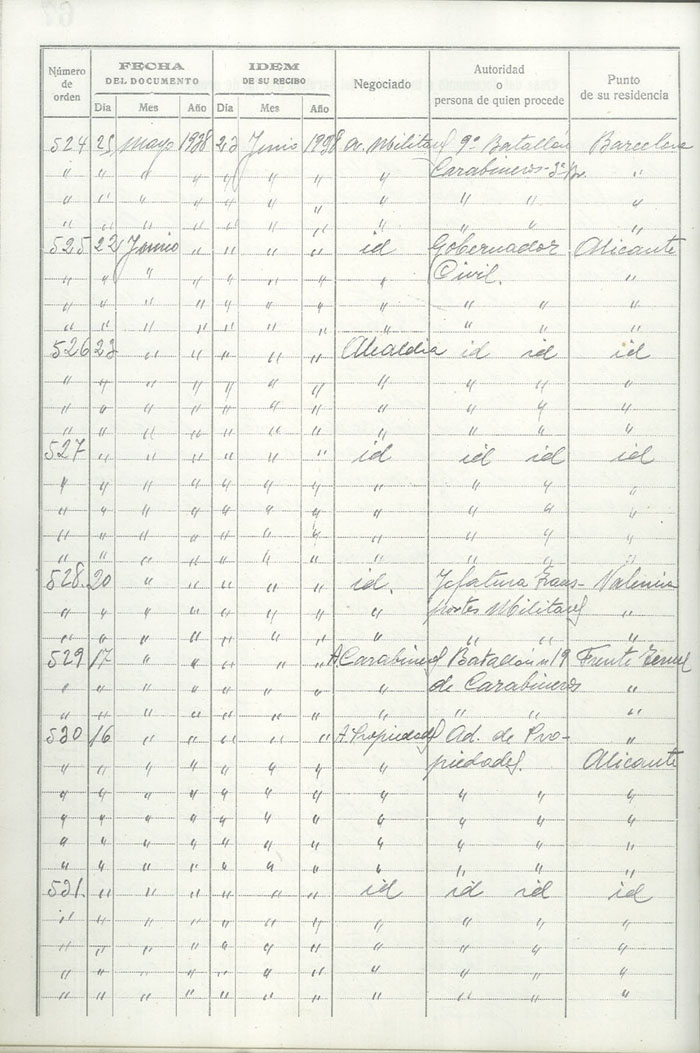 Número de orden | FECHA DEL DOCUMENTO | IDEM DE SU RECIBO | Negociado | Autoridad o persona de quien procede | Punto de su residencia
Día | Mes | Año | Día | Mes | Año
524 25 mayo 1938 23 Junio 1938 a. Militares 9º Batallón Barcelona
" " " " " " " " Carabineros-3ª Br. "
" " " " " " " " " " "
" " " " " " " " " " "
525 22 Junio " " " " id Gobernador Alicante
" " " " " " " " Civil. "
" " " " " " " " " " "
" " " " " " " " " " "
526 23 " " " " " Alcaldia id id id
" " " " " " " " " " "
" " " " " " " " " " "
" " " " " " " " " " "
527 " " " " " " id id id id
" " " " " " " " " " "
" " " " " " " " " " "
" " " " " " " " " " "
" " " " " " " " " " "
528. 20 " " " " " id. Jefatura Trans- Valencia
" " " " " " " " portes Militares "
" " " " " " " " " " "
529 17 " " " " " A. Carabineros Batallón nº 19 Frente Teruel
" " " " " " " " de Carabineros "
" " " " " " " " " " "
530 16 " " " " " Aº Propiedades Ad. de Pro- "
" " " " " " " " piedades. Alicante
" " " " " " " " " " "
" " " " " " " " " " "
" " " " " " " " " " "
" " " " " " " " " " "
531. " " " " " " id id id id
" " " " " " " " " " "
" " " " " " " " " " "
" " " " " " " " " " "
" " " " " " " " " " "